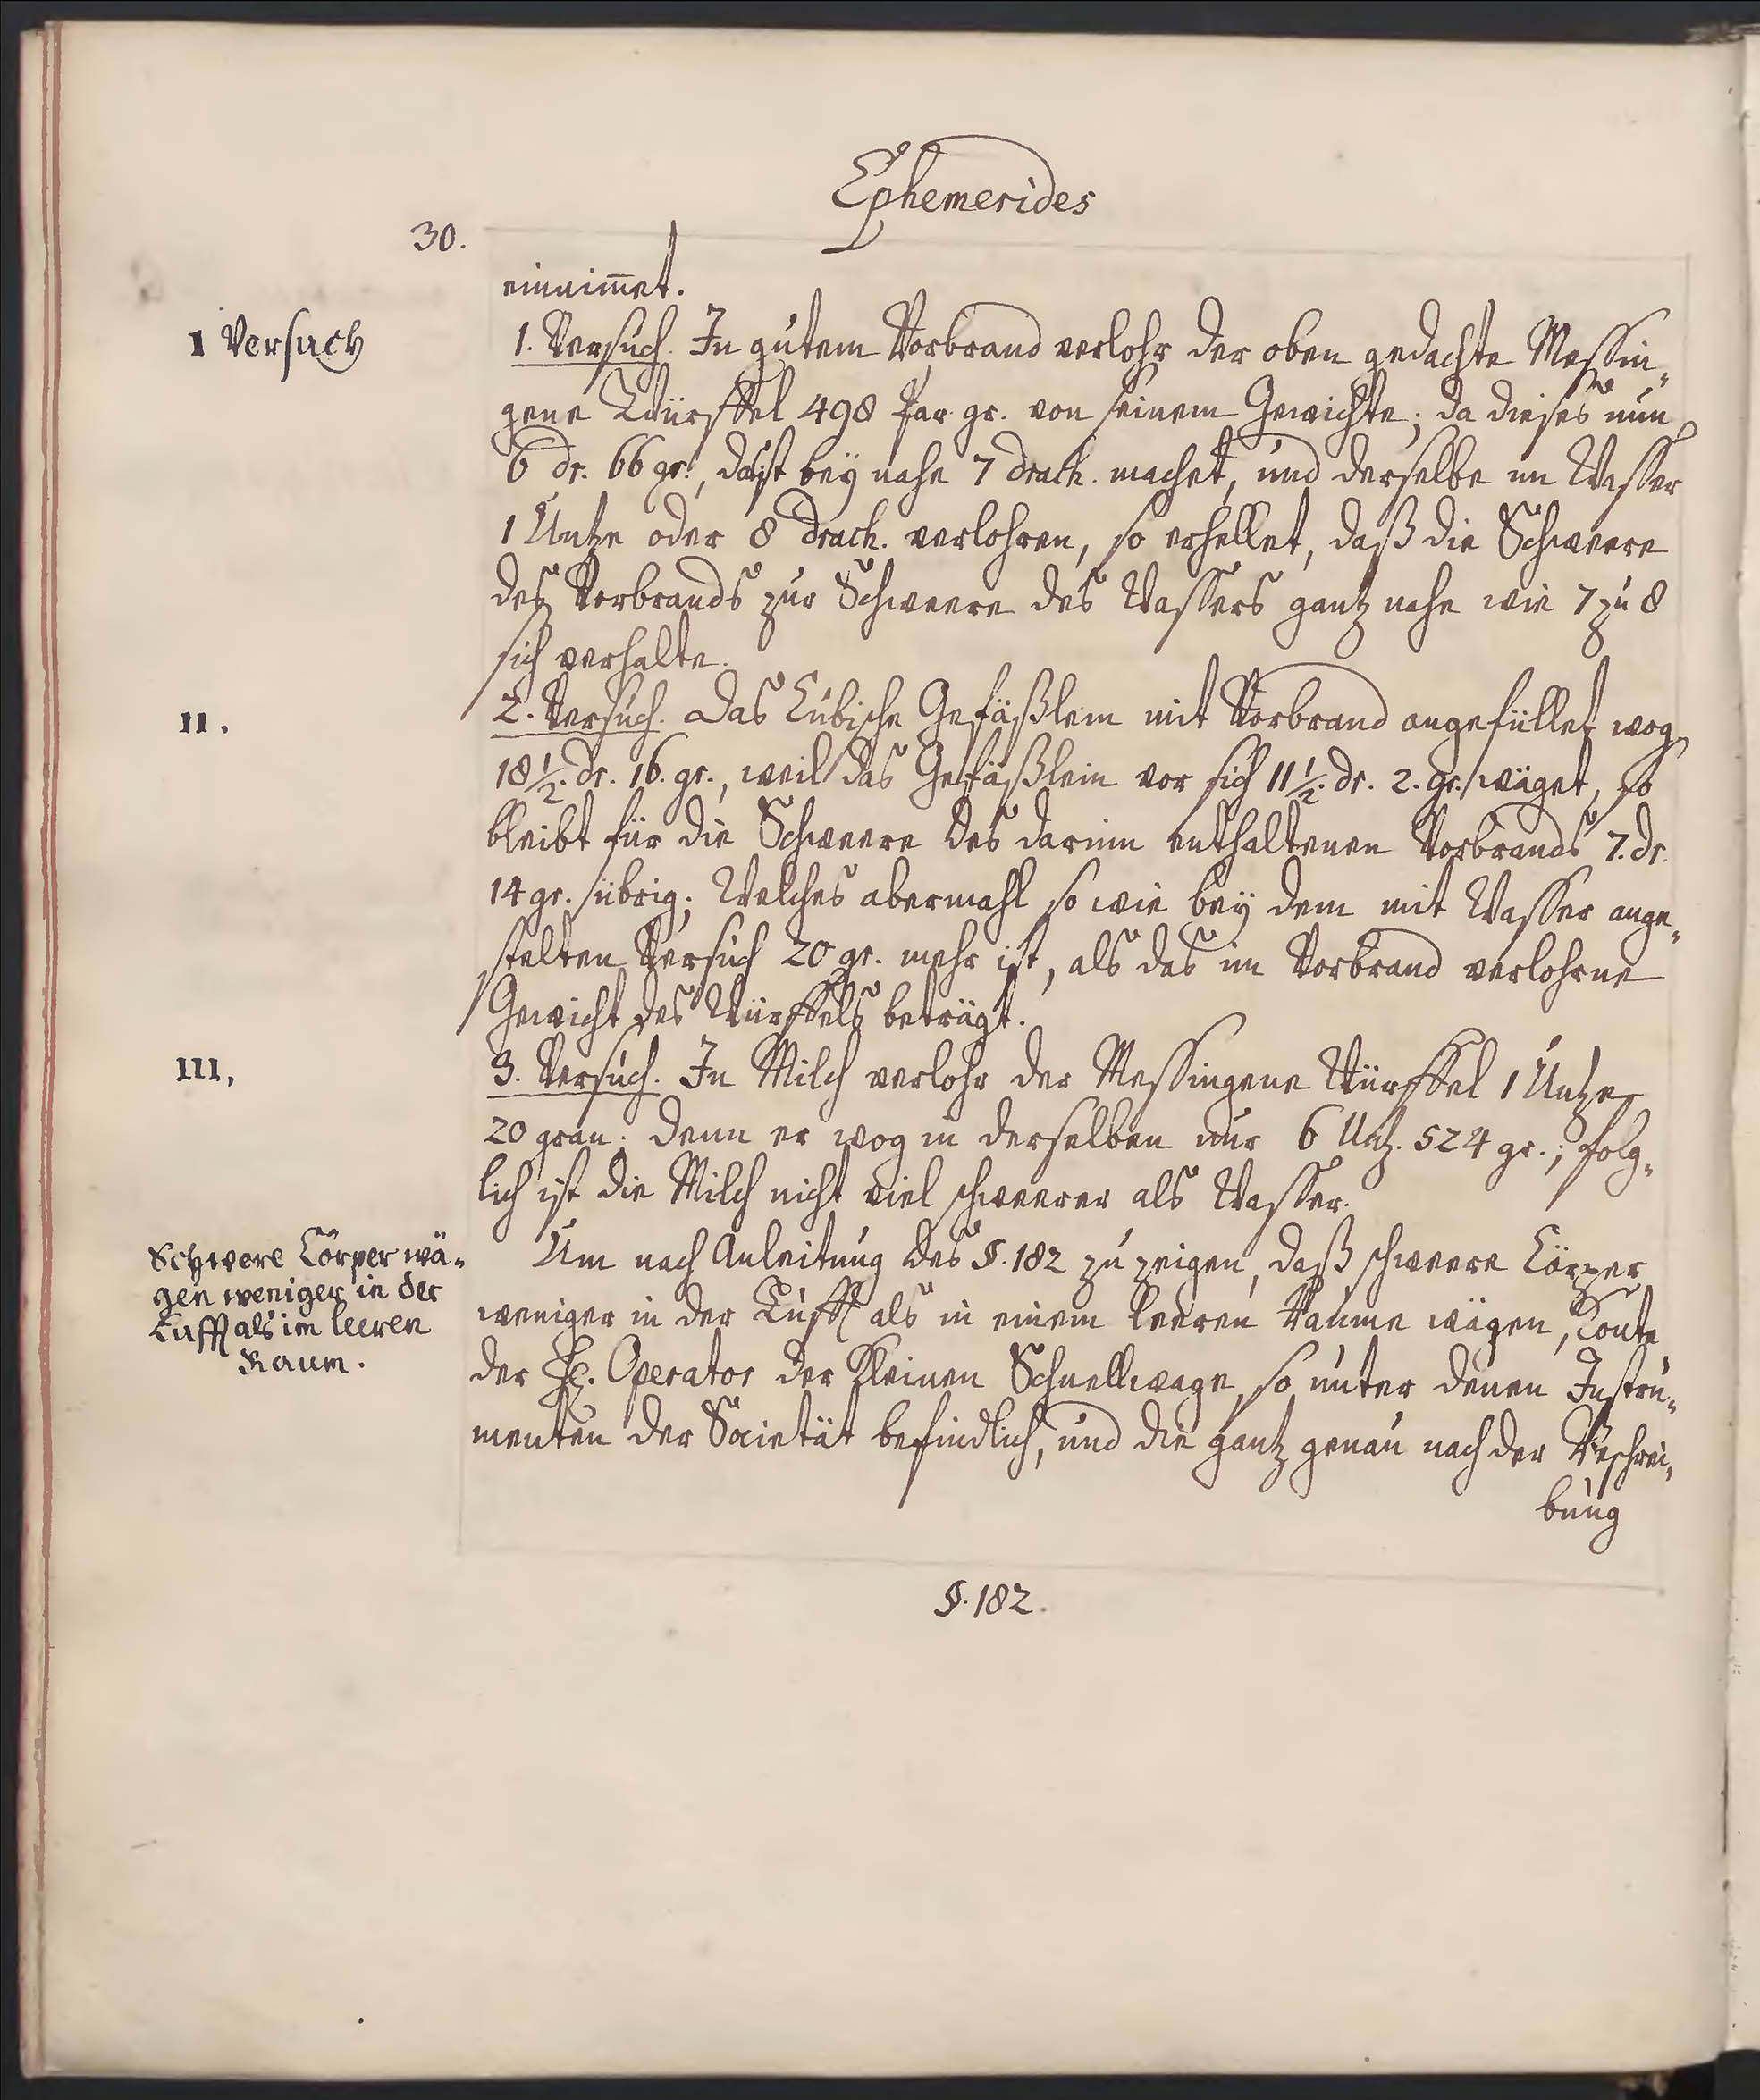 Ephemerides
30.
einnim̅et.
1 Versuch
1. Versuch. In gutem Vorbrand verlohr der oben gedachte Messin„
gene Würffel 498 par. gr. von seinem Gewichte; da dieses nun
6 dr. 66 gr., das ist bey nahe 7 drach. machet, und derselbe im Wasser
1 Untze oder 8 drach. verlohren, so erhellet, daß die Schweere
des Vorbrands zur Schweere des Wassers gantz nahe wie 7 zu 8
sich verhalte.
II.
2. Versuch. Das Cubische Gefäßlein mit Vorbrand angefüllet wog
18 1/2. dr. 16. gr., weil das Gefäßlein vor sich 11 1/2. dr. 2. gr. wäget, so
bleibt für die Schweere des darinn enthaltenen Vorbrands 7. dr.
14 gr. übrig; Welches abermahl so wie bey dem mit Wasser ange„
stelten Versuch 20 gr. mehr ist, als das im Vorbrand verlohrne
Gewicht des Würffels beträgt.
III,
3. Versuch. In Milch verlohr der Messingene Würffel 1 Untze
20 gran; denn er wog in derselben nur 6 Untz. 524 gr.; folg„
lich ist die Milch nicht viel schweerer als Wasser.
Schwere Cörper wä„
gen weniger in der
Lufft als im leeren
Raum.
Um nach Anleitung des §. 182 zu zeigen, daß schweere Cörper
weniger in der Lufft als in einem leeren Raume wägen, konte
der H. Operator der kleinen Schnellwage, so unter denen Instru„
menten der Societät befindlich, und die gantz genau nach der Beschrei„
bung
§. 182.